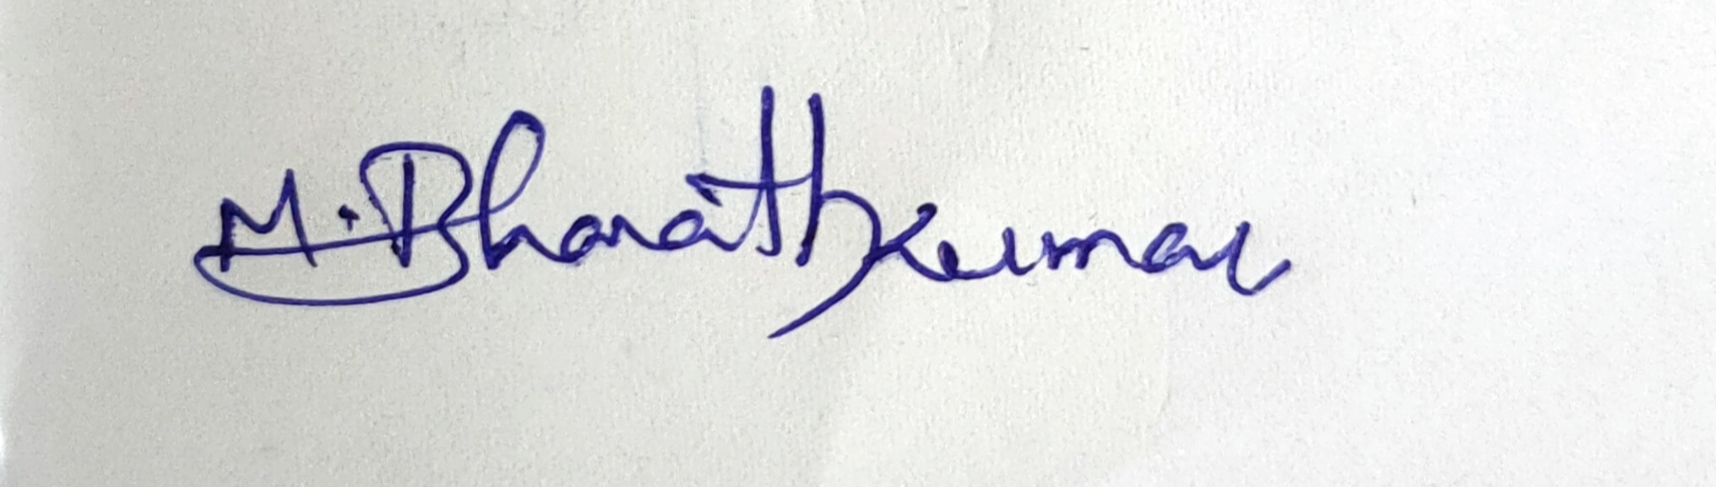 M. Bharathkumar